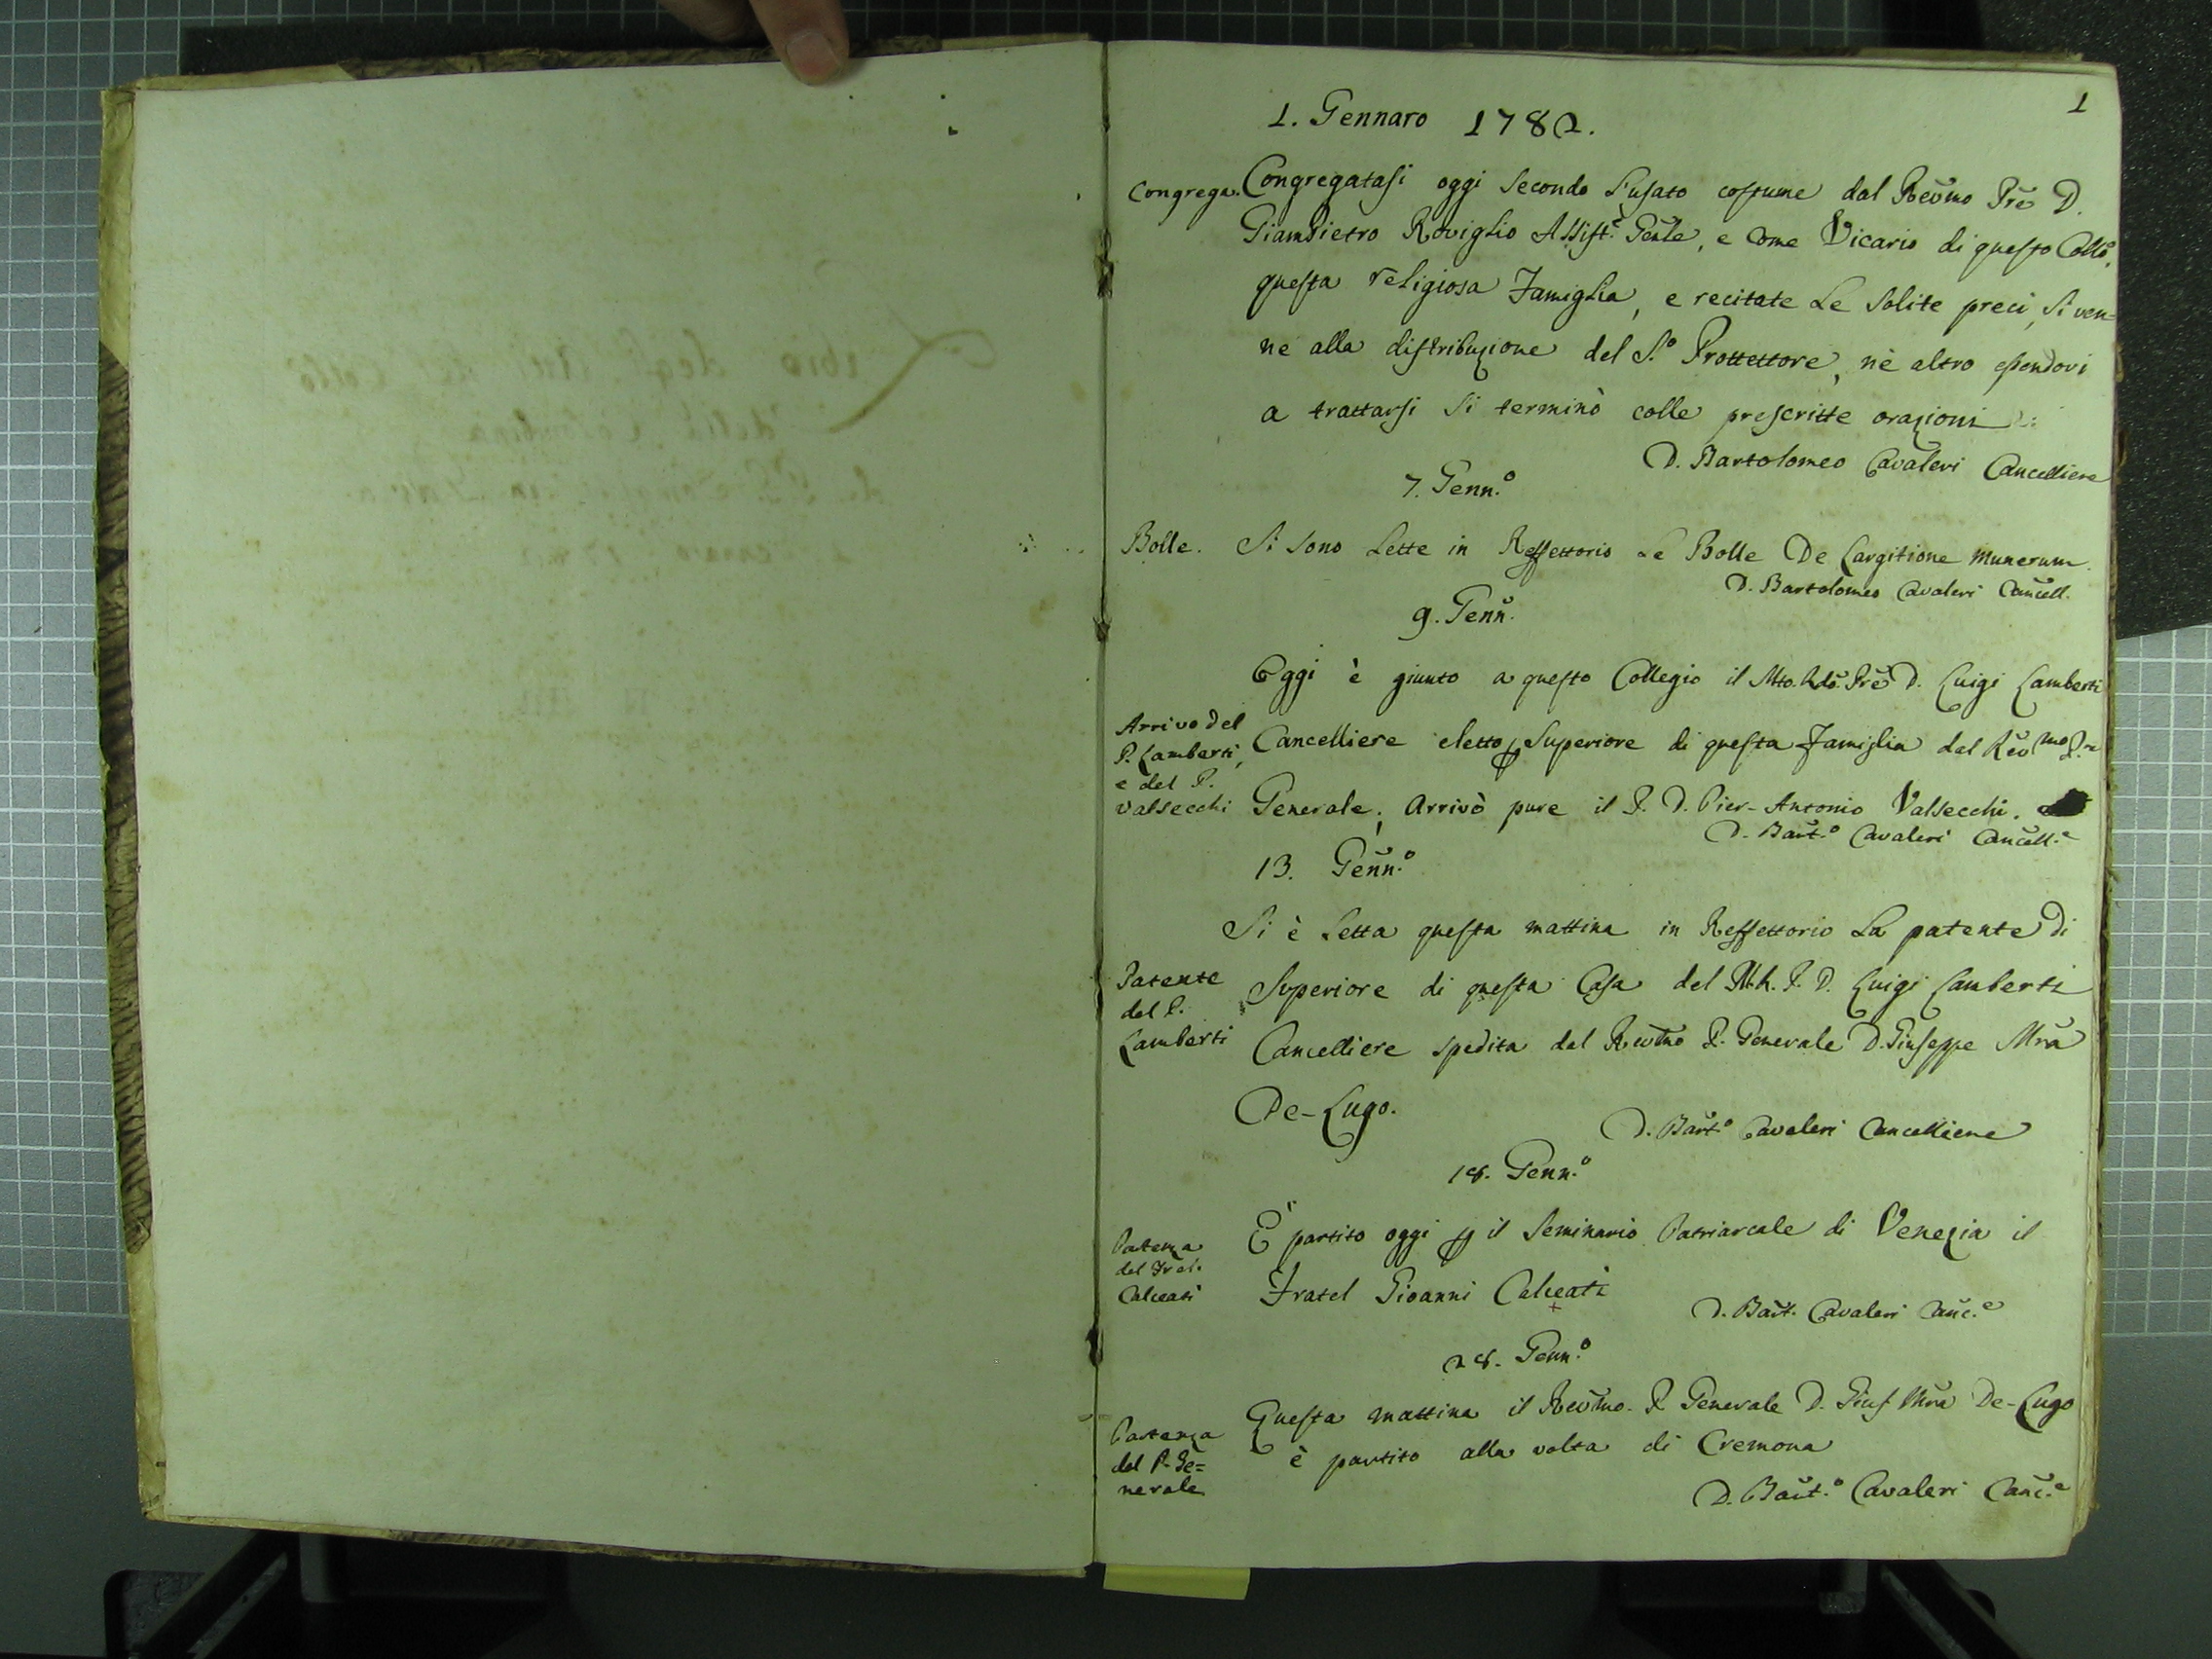 1
1. Gennaro 1782.
Congrega. Congregatasi oggi secondo l'usato costume dal Reṽmo Prẽ D.
Giampietro Roviglio Assist.e Genle, e come Vicario di questo Collo.
questa religiosa Famiglia, e recitate le solite preci, si ven=
ne alla distribuzione del S.o Prottettore, nè altro essendovi
a trattarsi si terminò colle prescritte orazioni
D. Bartolomeo Cavaleri Cancelliere
7. Genn.o
Bolle. Si sono lette in Reffettorio le Bolle De largitione munerum.
D. Bartolomeo Cavaleri Cancell.
9. Genn.
Oggi è giunto a questo Collegio il Mto. Rdo. Prẽ D. Luigi Lamberti
Arrivo del
P. Lamberti,
e del P.
Valsecchi
Cancelliere eletto Superiore di questa Famiglia dal Revmo P.re
Generale; Arrivò pure il P. D. Pier-Antonio Valsecchi.
D. Bart.o Cavaleri Cancell.e
13. Genn.o
Si è letta questa mattina in Reffettorio la patente di
Patente
del P.
Lamberti
Superiore di questa Casa del M. R. P. D. Luigi Lamberti
Cancelliere spedita dal Revmo P. Generale D. Giuseppe Mrã
De-Lugo.
D. Bart.o Cavaleri Cancelliere
18. Genn.o
Partenza
del Frat.
Calceati
È partito oggi p il Seminario Patriarcale di Venezia il
Fratel Gioanni Calceati
D. Bart. Cavaleri Canc.e
28. Genn.o
Partenza
del P. Ge=
nerale
Questa mattina il Revmo. P. Generale D. Gius Mrã De-Lugo
è partito alla volta di Cremona
D. Bart.o Cavaleri Canc.e